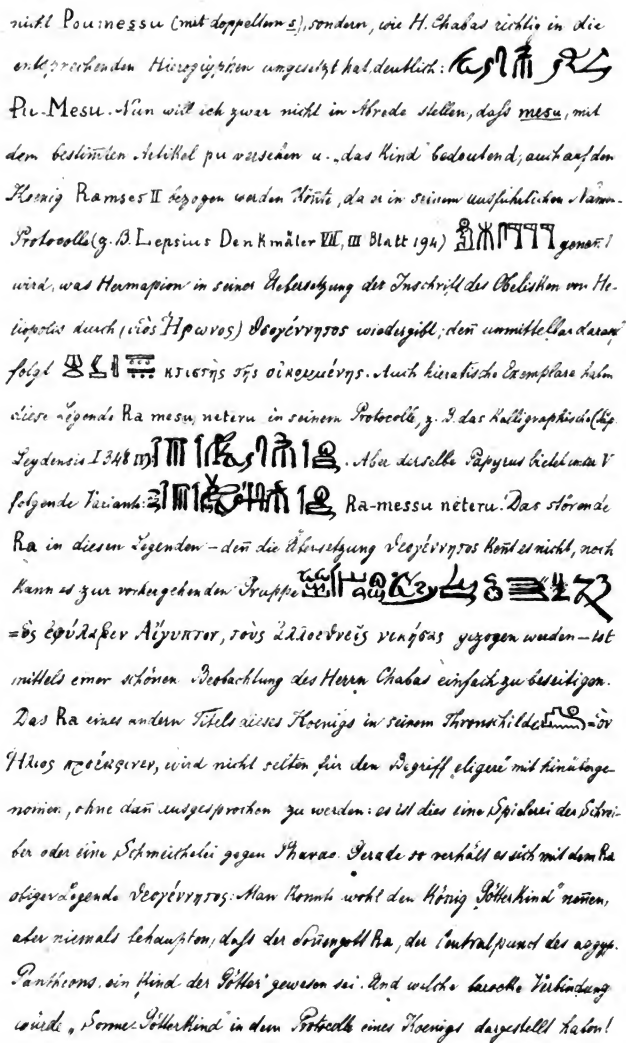 nicht Pou:messu (mit doppeltem s), sondern, wie H. Chabas richtig in die
entsprechenden Hieroglyphen umgesetzt hat, deutlich:
Pu-Mesu. Nun will ich zwar nicht in Abrede stellen, daſs mesu, mit
dem bestim̅ten Artikel pu versehen u. „das Kind" bedeutend, auch auf den
Koenig Ramses II bezogen werden kön̅te, da er in seinem ausführlichen Namen-
Protocolle (z. B. Lepsius Denkmäler VII, III Blatt 194) genan̅t
wird, was Hermapion in seiner Uebersetzung der Inschrift des Obelisken von He-
liopolis durch (υἱὸς Ἥρωνος) θεογέννητος wiedergibt; den̅ unmittelbar darauf
folgt κτιστὴς τῆς οἰκουμένης. Auch hieratische Exemplare haben
diese Legende Ra mesu neteru in seinem Protocolle, z. B. das kalligraphische (Pap.
Leydensis I 348 . Aber derselbe Papyrus bietet unter V
folgende Variante: Ra-messu neteru. Das störende
Ra in diesen Legenden – den̅ die Übersetzung θεογέννητος ken̅t es nicht, noch
kann es zur vorhergehenden Gruppe
=ὃς ἐφύλαξεν Αἴγυπτον, τοὺς ἀλλοεθνεῖς νικήσας gezogen werden – ist
mittels einer schönen Beobachtung des Herrn Chabas einfach zu beseitigen.
Das Ra eines andern Titels dieses Koenigs in seinem Thronschilde =ὃν
Ἥλιος προέκρινεν, wird nicht selten für den Begriff eligere mit hinüberge-
nom̅en, ohne dan̅ ausgesprochen zu werden: es ist dies eine Spielerei der Schrei-
ber oder eine Schmeichelei gegen Pharao. Gerade so verhält es sich mit dem Ra
obiger Legende θεογέννητος: Man konnte wohl den König „Götterkind" nen̅en,
aber niemals behaupten, daſs der Son̅engott Ra, der Centralpunct des aegypt.
Pantheons, ein Kind der Götter gewesen sei. Und welche barocke Verbindung
würde „Sonne-Götterkind" in dem Protocolle eines Koenigs dargestellt haben!